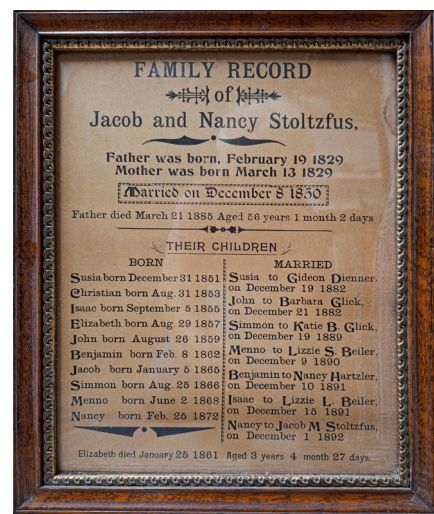 FAMILY RECORD
of
Jacob and Nancy Stoltzfus,
Father was born, February 19 1829
Mother was born March 13 1829
Married on December 8 1850
Father died March 21 1885 Aged 56 years 1 month 2 days
THEIR CHILDREN
BORN
Susia born December 31 1851
Christian born Aug. 31 1853
Isaac born September 5 1855
Elizabeth born Aug. 29 1857
John born August 26 1859
Benjamin born Feb. 8 1862
Jacob born January 5 1865
Simmon born Aug. 25 1866
Menno born June 2 1868
Nancy born Feb. 25 1872
MARRIED
Susia to Gideon Dienner.
on December 19 1882
John to Barbara Glick,
on December 21 1882
Simmon to Katie B. Glick,
on December 19 1889
Menno to Lizzie S. Beiler,
on December 9 1890
Benjamin to Nancy Hartzler,
on December 10 1891
Isaac to Lizzie L. Beiler,
on December 15 1891
Nancy to Jacob M. Stoltzfus,
on December 1 1892
Elizabeth died January 25 1861 Aged 3 years 4 month 27 days